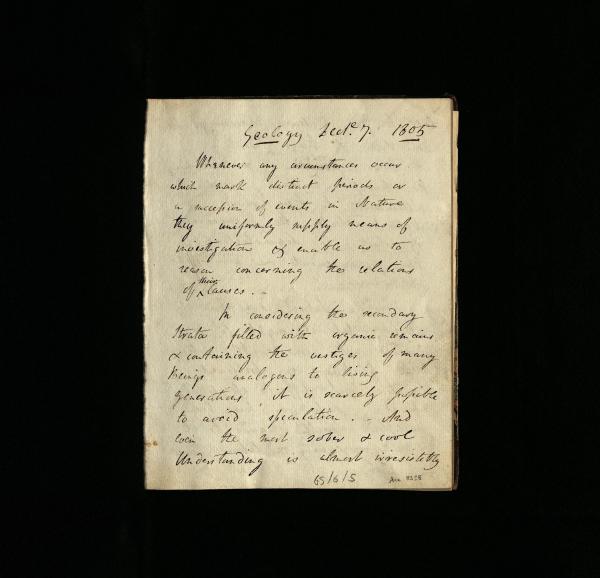 Geology Lecte. 7. 1805
Whenever any circumstances occur
which mark distinct periods or
a succession of events in Nature
they uniformly supply means of
investigation & enable us to
reason concerning the relations
of their causes. –
In considering the secondary
strata filled with organic remains
& containing the vestiges of many
beings analogous to living
generations it is scarcely possible
to avoid speculation. – And
even the most sober & cool
Understanding is almost irresistibly
65/6/5